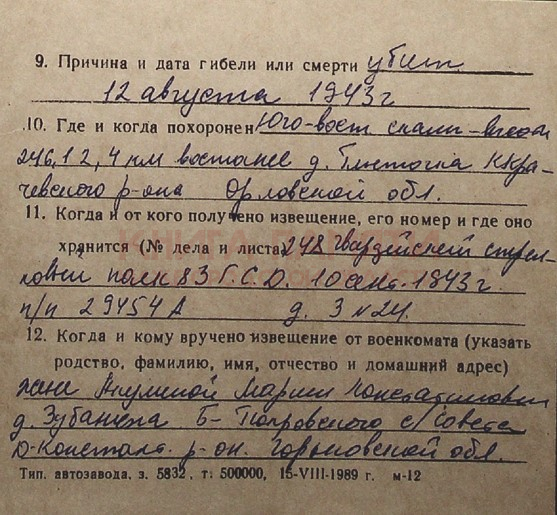 9. Причина и дата гибели или смерти убит
12 августа 1943 г
10. Где и когда похоронен Юго-вост скаты -
246,1 2,4 км восточнее д.
р-она Орловской обл.
11. Когда и от кого получено извещение, его номер и где оно
хранится (№ дела и листа) 248 гвардейский стрел-
ковый полк 83 Г.С.Д. 10 сент. 1943 г.
п/п 29454 А д. 3 л 24.
12. Когда и кому вручено извещение от военкомата (указать
родство, фамилию, имя, отчество и домашний адрес)
жене Марии Константиновне
д. Б- с/совета
р-он. Горьковской обл.
Тип. автозавода, з. 5832, т. 500000, 15-VIII-1989 г. м-12